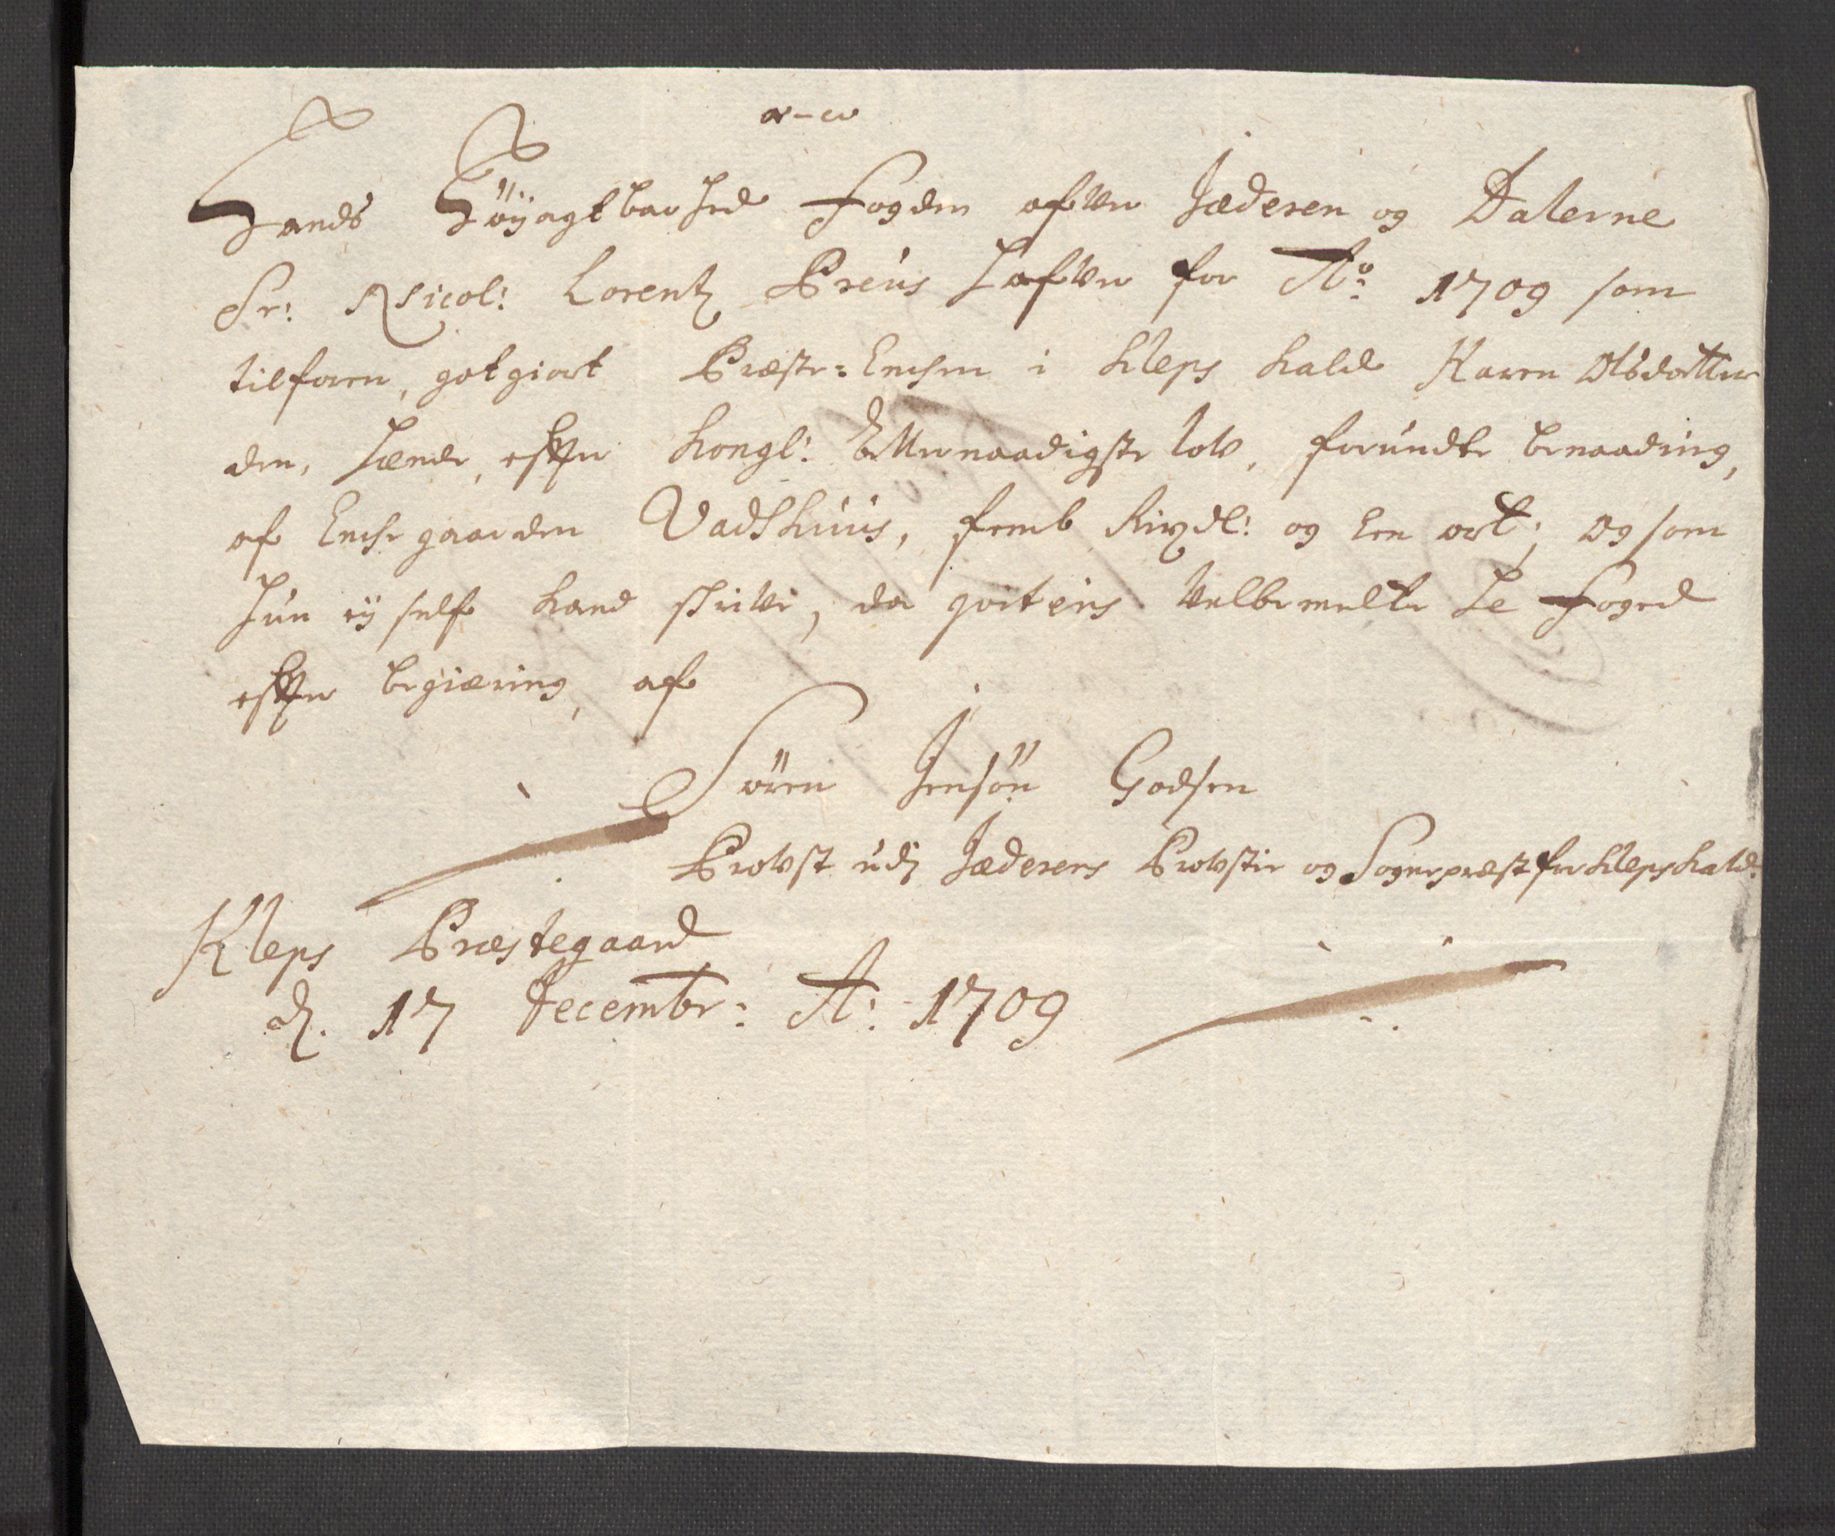 α-ω
Hands Höyagtbarhed Fogden ofver Jæderen og Dalerne
Sr: Nicol: Lorentz Preus hafver for Ao: 1709 som
tilforen, gotgiort Præste-Enchen i Kleps kald Karen Olsdotter
den, hende, efter Kongl: allernaadigste lov, forundte benaading,
af Enche gaarden Vadshuus, femb Rixdl: og een ort; og som
hun ej self kand skrive, da qviteris velbemelte Hr Foged
efter begiæring, af
Sören Jensön Godsen
Provst udj Jæderens Provstie og Sognepræst for Kleps kald.
Kleps Præstegaard
d. 17 Decembr: A: 1709